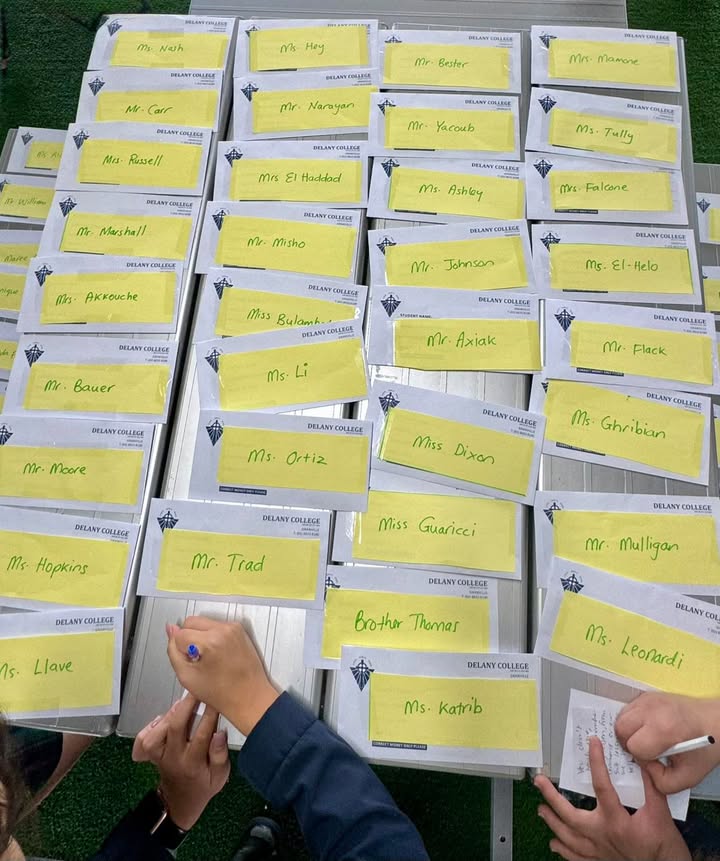 DELANY COLLEGE
Ms. Nash
DELANY COLLEGE
Mr. Carr
DELANY COLLEGE
Mrs. Russell
DELANY COLLEGE
Mr. Marshall
DELANY COLLEGE
Ms. Akkouche
DELANY COLLEGE
Mr. Bauer
DELANY COLLEGE
Mr. Moore
DELANY COLLEGE
Ms. Hopkins
DELANY COLLEGE
Ms. Llave
DELANY COLLEGE
Ms. Hey
DELANY COLLEGE
Mr. Narayan
DELANY COLLEGE
Mrs El Haddad
DELANY COLLEGE
Mr. Misho
DELANY COLLEGE
Miss
DELANY COLLEGE
Ms. Li
DELANY COLLEGE
Ms. Ortiz
CORRECT MONEY ONLY PLEASE
DELANY COLLEGE
GRANVILLE
Mr. Trad
DELANY COLLEGE
Mr. Bester
DELANY COLLEGE
Mr. Yacoub
DELANY COLLEGE
Ms. Ashley
DELANY COLLEGE
Mr. Johnson
DELANY COLLEGE
STUDENT NAME:
Mr. Axiak
DELANY COLLEGE
Miss Dixon
Miss Guaricci
DELANY COLLEGE
Brother Thomas
DELANY COLLEGE
GRANVILLE
Ms. Katrib
CORRECT MONEY ONLY PLEASE
DELANY COLLEGE
Mrs. Mamone
DELANY COLLEGE
Ms. Tully
DELANY COLLEGE
Mrs. Falcone
DELANY COLLEGE
Ms. El-Helo
DELANY COLLEGE
Mr. Flack
DELANY COLLEGE
Ms. Ghribian
DELANY COLLEGE
Mr. Mulligan
DELANY COLLEGE
Ms. Leonardi